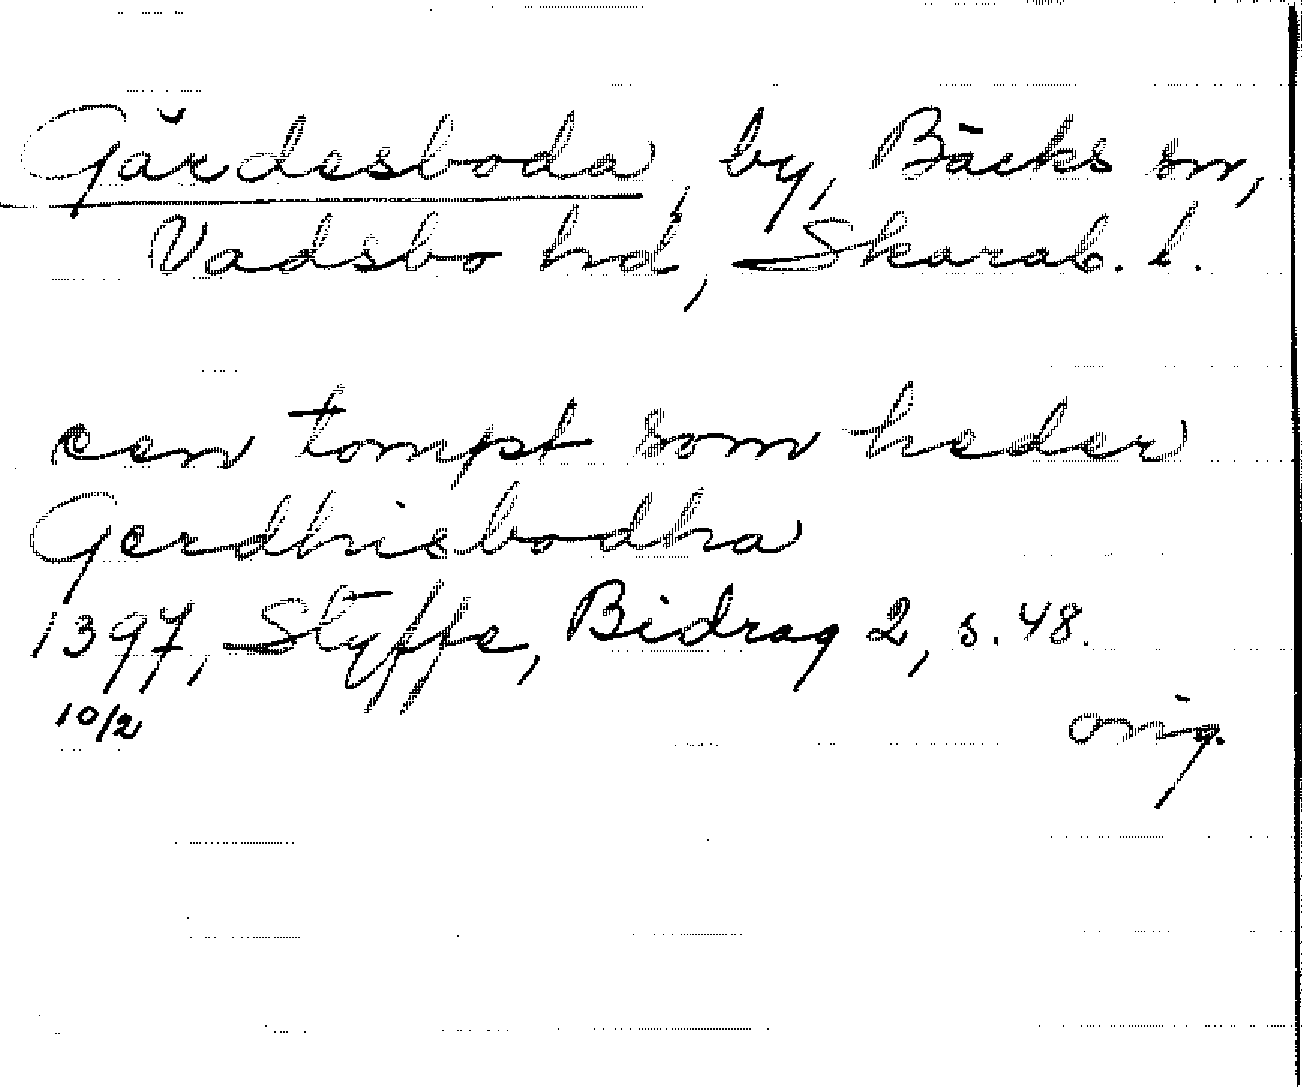 Gärdesboda, by, Bäcks sn,
Vadsbo hd, Skarab. l.
een tompt som heder
Gerdhisbodha
1397, Styffe, Bidrag 2, s. 48.
10/2 orig.